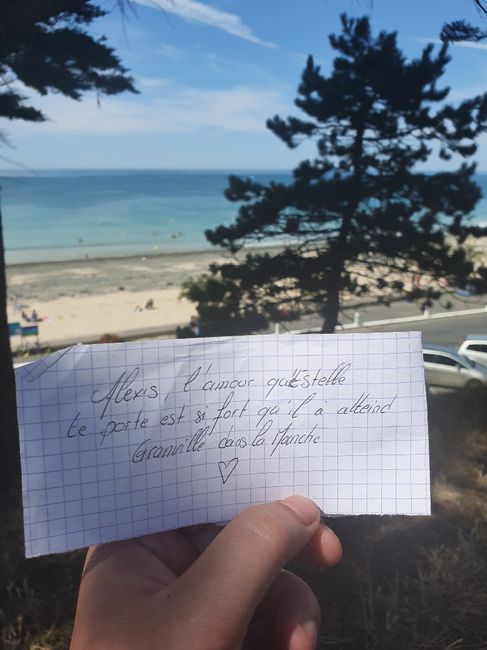 Alexis, l'amour qu'Estelle
te porte est si fort qu'il à atteind
Granville dans la Manche
♡